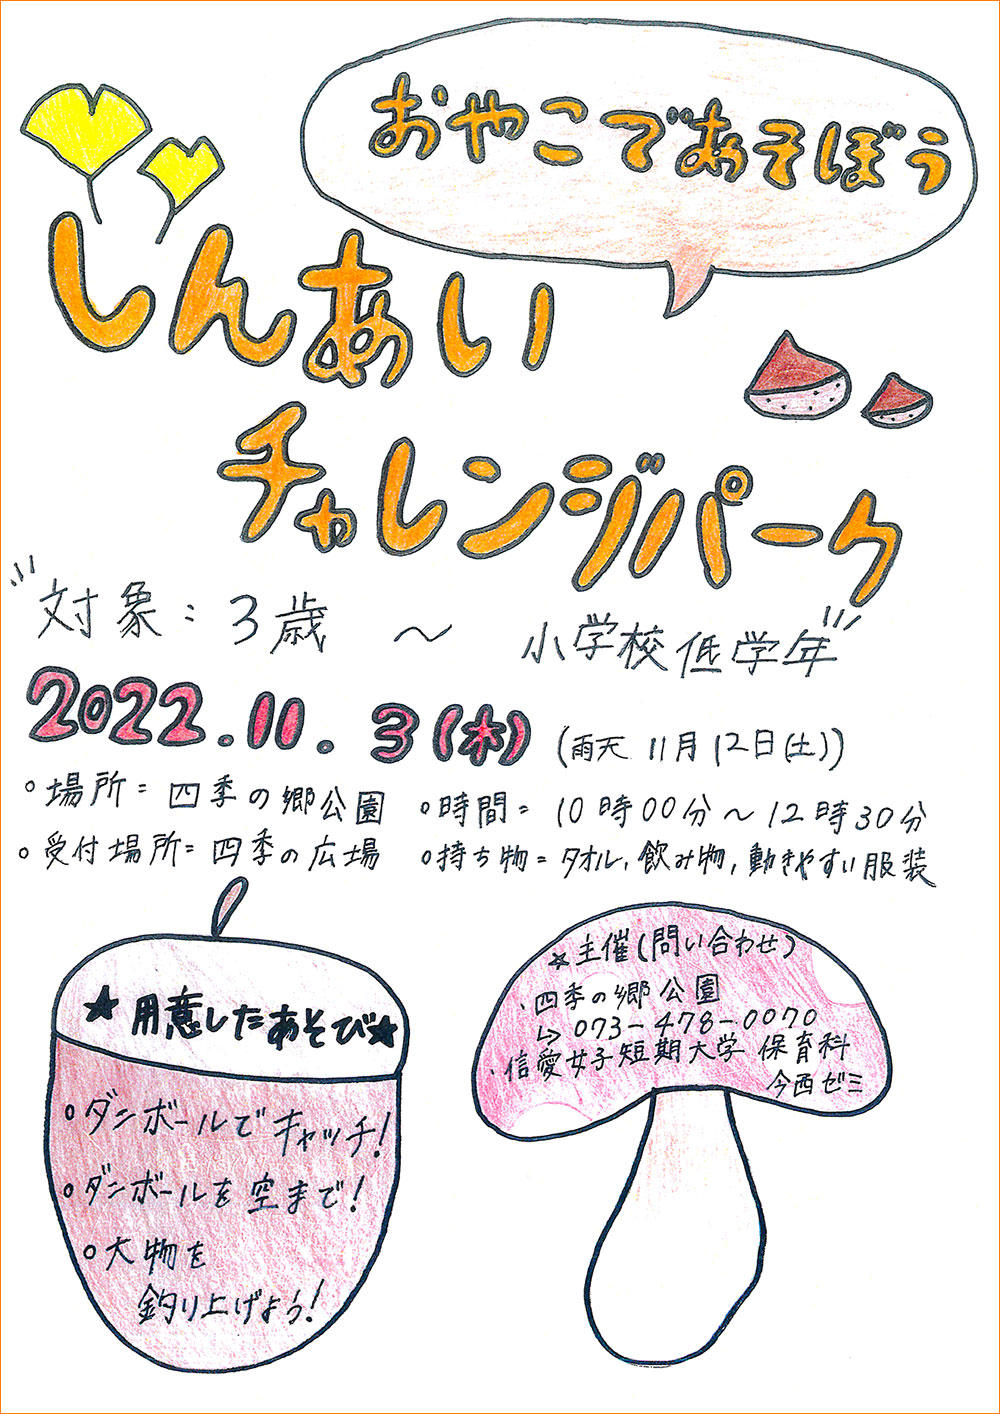 おやこであそぼう
しんあい
チャレンジパーク
対象：3歳 〜 小学校低学年
2022.11.3(木) (雨天 11月12日(土))
◦場所=四季の郷公園 ◦時間=10時00分〜12時30分
◦受付場所=四季の広場 ◦持ち物=タオル,飲み物,動きやすい服装
★用意したあそび★
◦ダンボールでキャッチ!
◦ダンボールを空まで!
◦大物を
釣り上げよう!
☆主催(問い合わせ)
・四季の郷公園
↳073-478-0070
・信愛女子短期大学 保育科
今西ゼミ